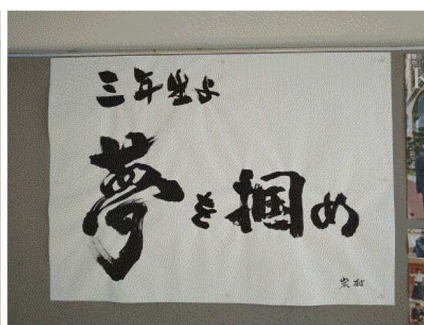 三年生よ
夢を掴め
岩村